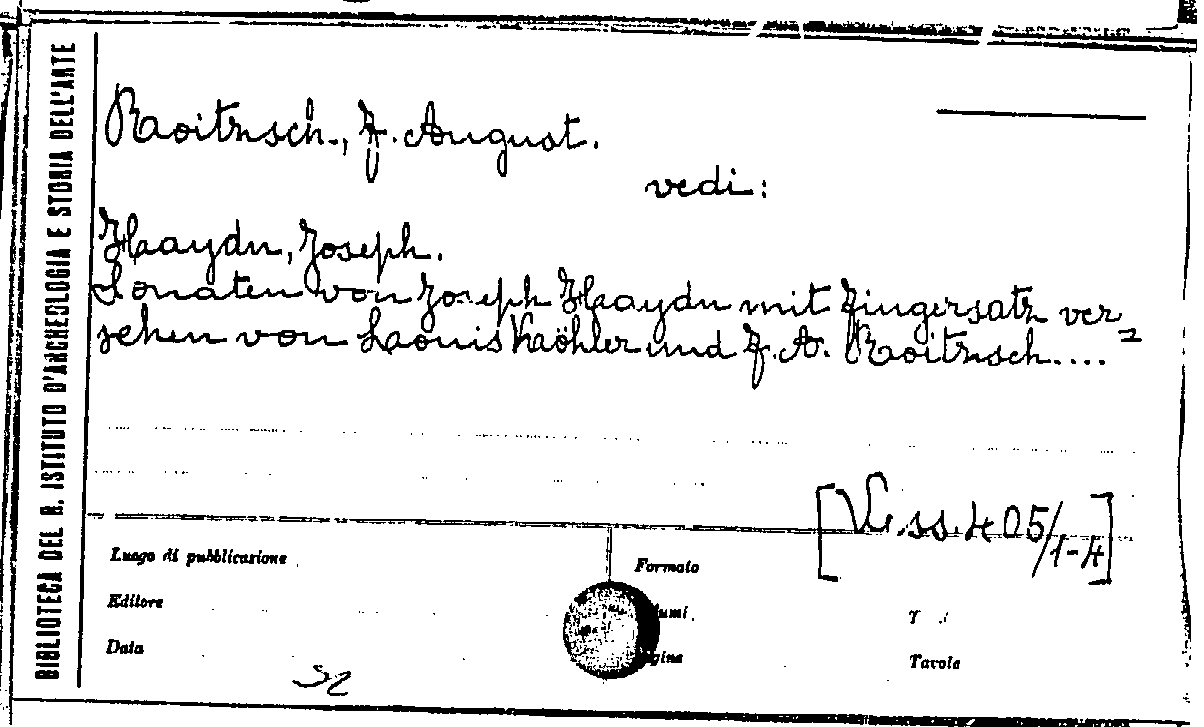 BIBLIOTECA DEL R. ISTITUTO D'ARCHEOLOGIA E STORIA DELL'ARTE
Roitzsch, F. August.
vedi:
Haydn, Joseph.
Sonaten von Joseph Haydn mit Fingersatz ver
sehen von Louis Köhler und F. A. Roitzsch....
[Vess. 405/1-4]
Luogo di pubblicazione
Formato
Editore
Data
Tavole